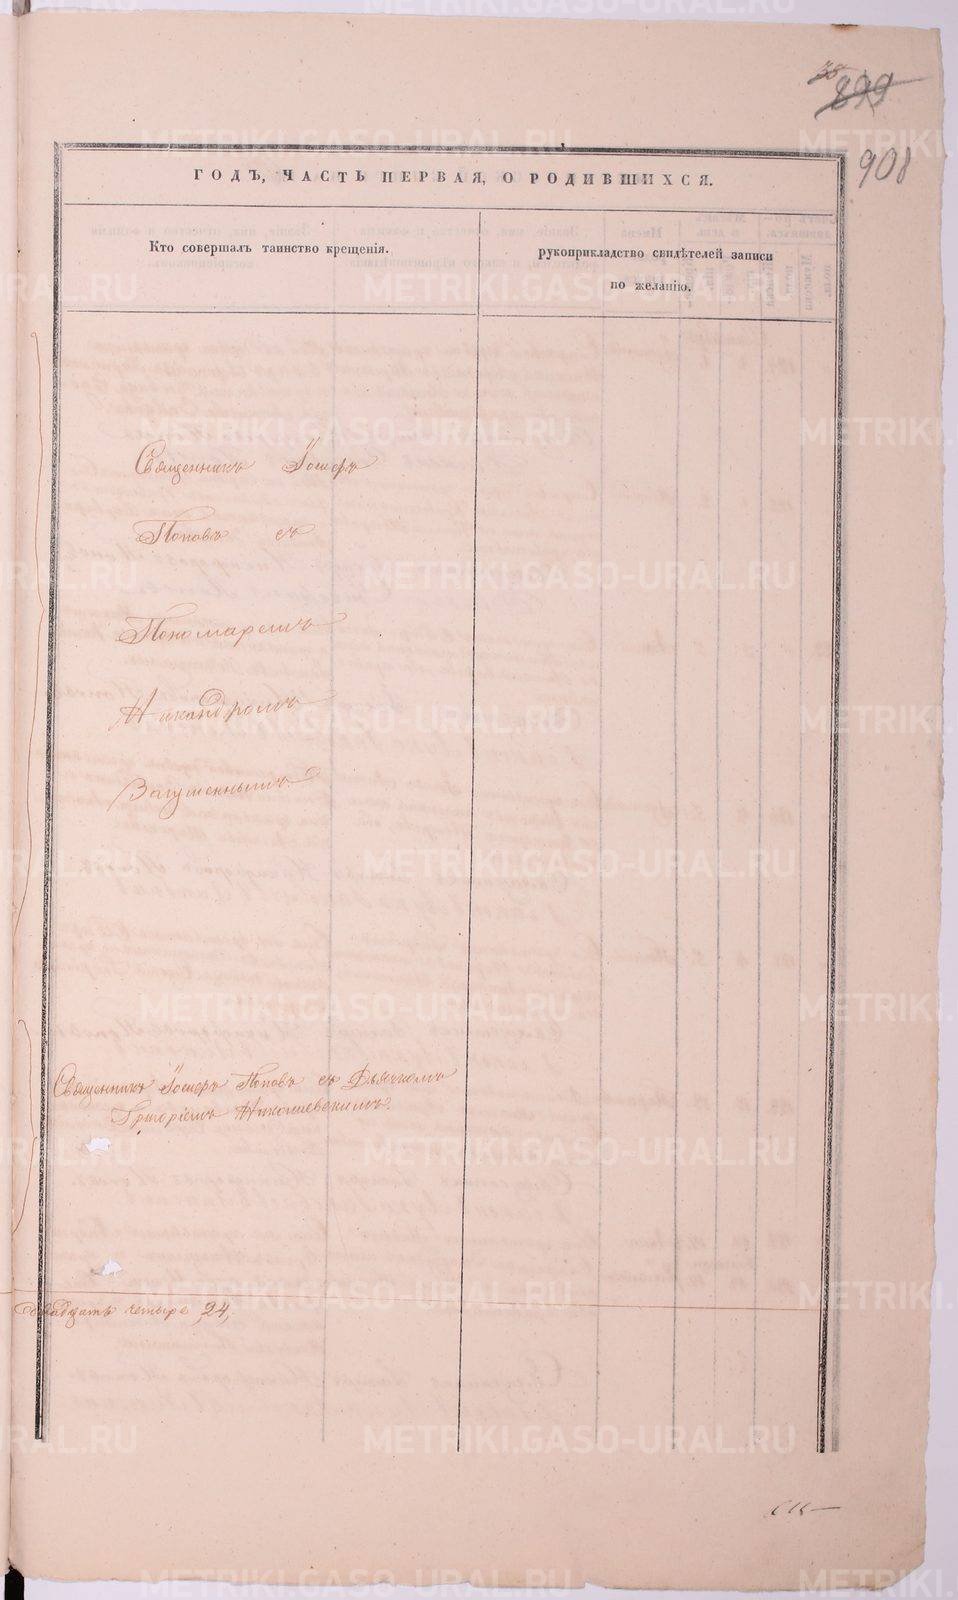 38
899
908
ГОДЪ, ЧАСТЬ ПЕРВАЯ, О РОДИВШИХСЯ.
Кто совершалъ таинство крещенія.
рукоприкладство свидѣтелей записи
по желанію.
Священникъ Іосифъ
Поповъ съ
Пономаремъ
Никандромъ
Священникъ Іосифъ Поповъ съ Дьячкомъ
Григоріемъ Николаевскимъ.
четыре 24,
METRIKI.GASO-URAL.RU